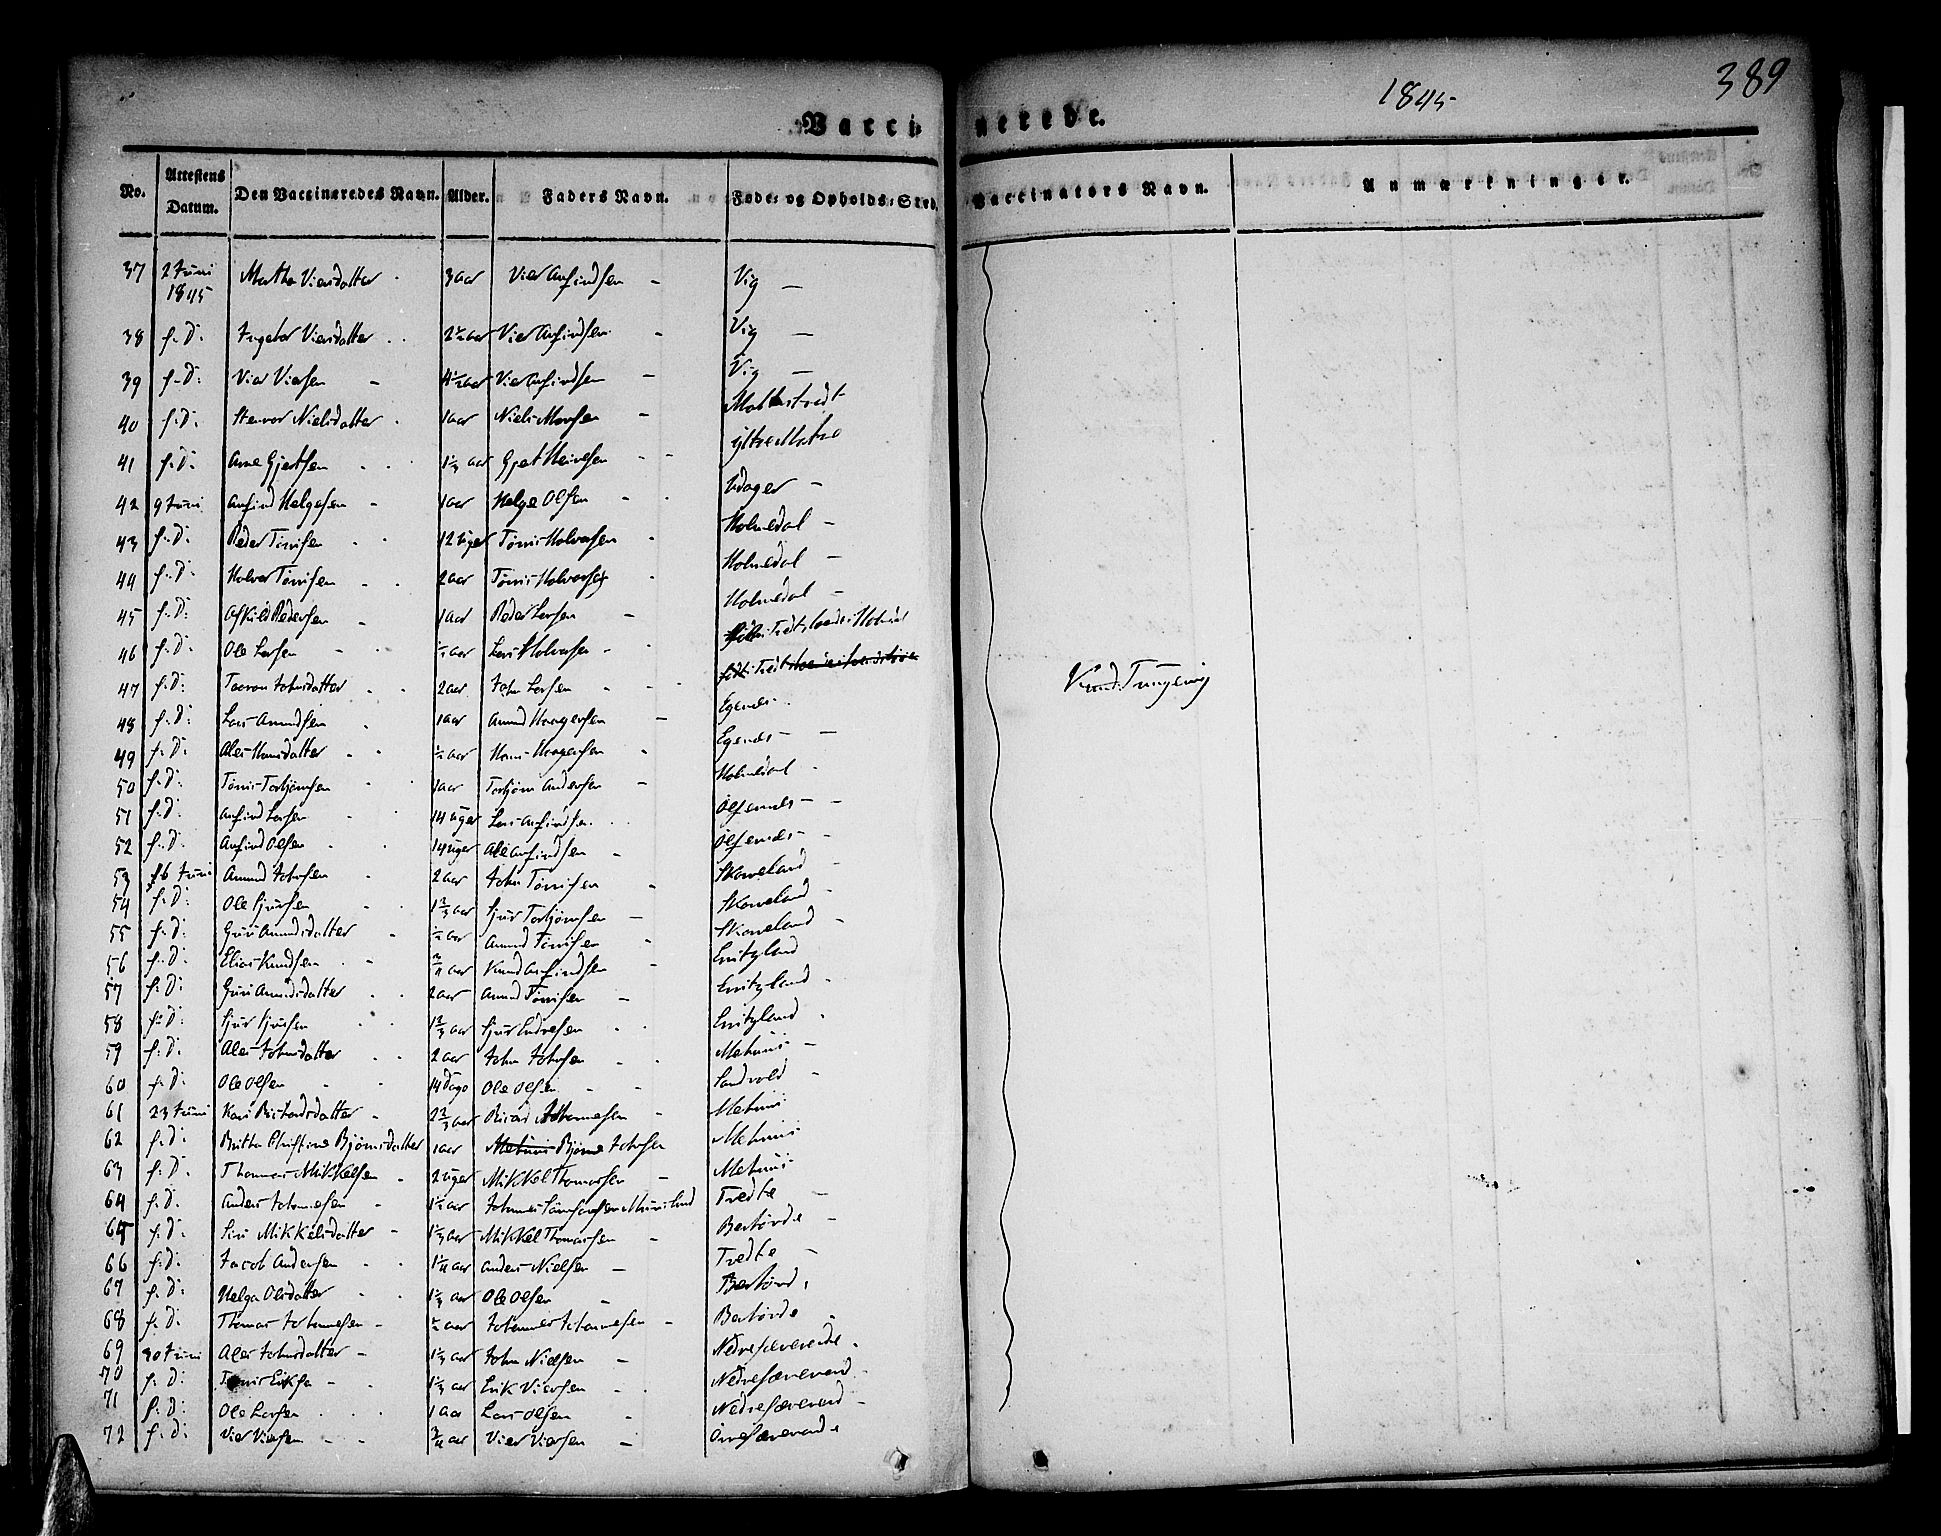 389
1845
Vaccinerede.
No. Attestens Datum. Den Vaccineredes Navn. Alder. Faders Navn. Føde- og Opholds-Sted. Vaccinators Navn. Anmærkninger.
37 2 Juni 1845 Martha Viersdatter 3 aar Vier Anfindsen Vig
38 s. D. Ingebor Viersdatter 2 1/2 aar Vier Anfindsen Vig
39 s. D. Vier Viersen 4 1/2 aar Vier Anfindsen Vig
40 s. D. Stenvor Nielsdatter 1 aar Niels
41 s. D. Arne Gjertsen aar Gjert Ytre
42 9 Juni Anfind Helgesen 1 aar Helge Olsen
43 s. D. Peder Tørrisen 12 Uger Tørris Holversen Holmedal
44 s. D. Holver Tørrisen 2 aar Tørris Holversen Holmedal
45 s. D. Askild Pedersen 1 aar Peder Larsen Holmedal
46 s. D. Ole Larsen 1/2 aar Lars Holversen
47 s. D. Johnsdatter 2 aar John Larsen
48 s. D. Lars Amundsen 1 aar Amund Haagensen Egenes
49 s. D. Ales Hansdatter 1/2 aar Hans Haagensen Egenes
50 s. D. Tørris Torbjørnsen 1 aar Torbjørn Andersen Holmedal
51 s. D. Anfind Larsen 14 Uger Lars Anfindsen Ølfernes
52 s. D. Anfind Olsen 14 Uger Ole Anfindsen Ølfernes
53 16 Juni Amund Johnsen 2 aar John Tørrisen Skaneland
54 s. D. Ole Sjursen 1 2/3 aar Sjur Torbjørnsen Skaneland
55 s. D. Guri Amundsdatter 1/2 aar Amund Tørrisen Skaneland
56 s. D. Elias Knudsen 3/4 aar Knud Anfindsen
57 s. D. Guri Amundsdatter 2 aar Amund Tørrisen
58 s. D. Sjur Sjursen 1 2/3 aar Sjur Endresen
59 s. D. Ales Johnsdatter 2 aar John Johnsen Mehuus
60 s. D. Ole Olsen 14 Dage Ole Olsen Sandvold
61 23 Juni Kari Richardsdatter 2 2/3 aar Ricard Johannesen Mehuus
62 s. D. Britha Christine Bjørnsdatter 1 aar Bjørne Johnsen Mehuus
63 s. D. Thomas Mikkelsen 2 Uger Mikkel Thomassen Mehuus
64 s. D. Anders Johannesen 1 1/2 aar Johannes Tredte
65 s. D. Siri Mikkelsdatter 1 1/3 aar Mikkel Thomassen Børtørde
66 s. D. Jacob Andersen 1 1/4 aar Anders Nielsen Tredte
67 s. D. Helga Olsdatter 1 1/3 aar Ole Olsen
68 s. D. Thomas Johannesen 1/2 aar Johannes Johannesen
69 30 Juni Ales Johnsdatter 1 1/3 aar John Nielsen
70 s. D. Tørris Eriksen 1 1/3 aar Erik Viersen
71 s. D. Ole Larsen 1 aar Lars Olsen
72 s. D. Vier Viersen 3/4 aar Vier Viersen
Knud Tungesvig